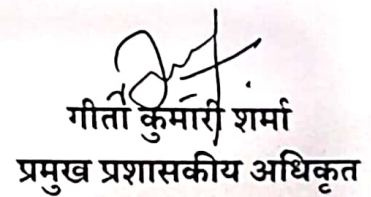 गीता कुमारी शर्मा
प्रमुख प्रशासकीय अधिकृत